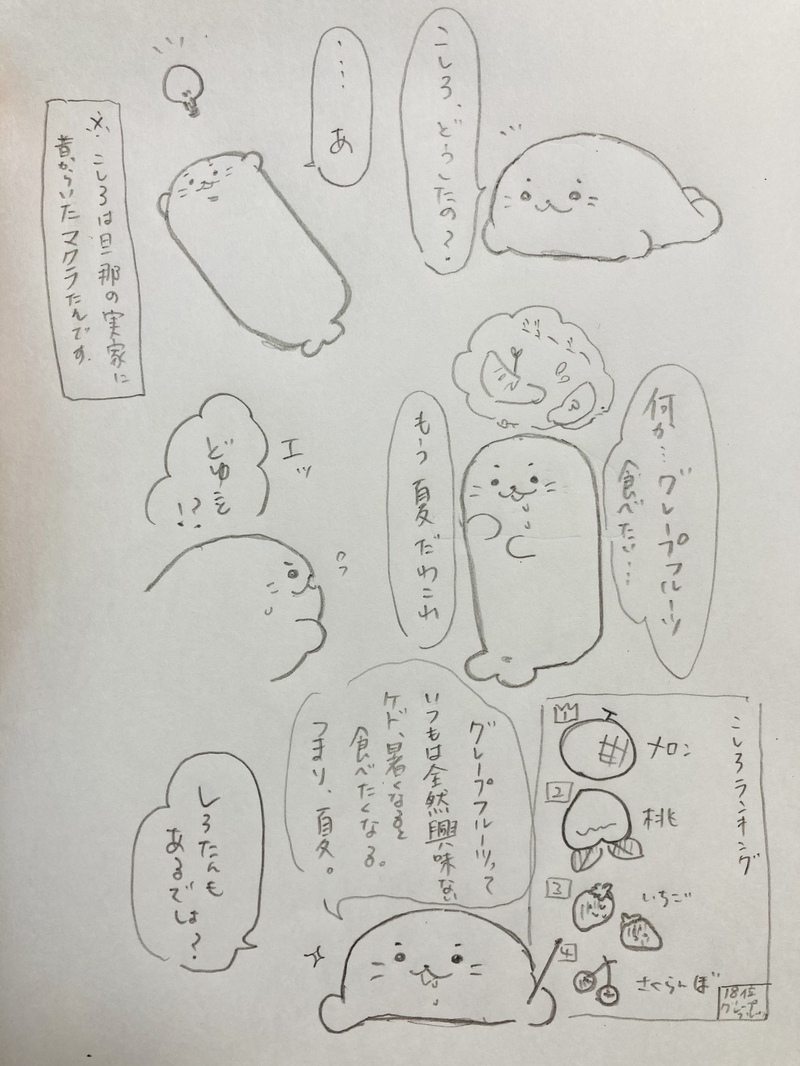 こしろ、どうしたの?
・・・・あ
※こしろは旦那の実家に
昔からいたマクラたんです。
何か…グレープフルーツ
食べたい…
もう夏だわこれ
エッ
どゆこと
!?
こしろランキング
1
メロン
2
桃
3
いちご
4
さくらんぼ
18位
グレープ
グレープフルーツって
いつもは全然興味ない
ケド、暑くなると
食べたくなる。
つまり、夏。
しろたんも
あるでしょ?